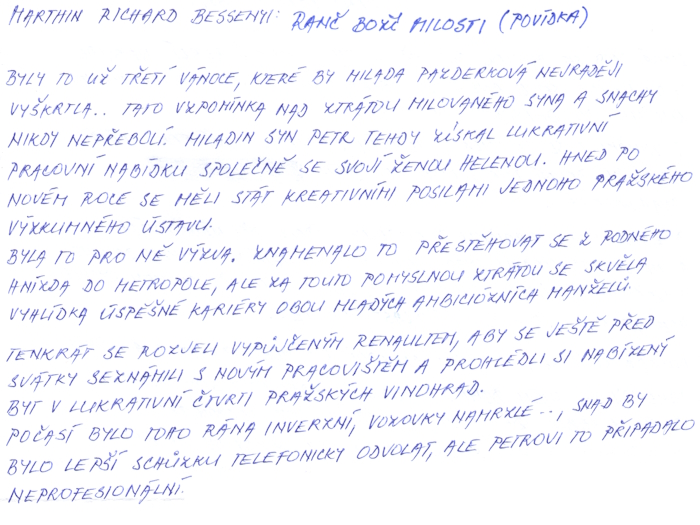 MARTHIN RICHARD BESSENYI: RANČ BOŽÍ MILOSTI (POVÍDKA)
BYLY TO UŽ TŘETÍ VÁNOCE, KTERÉ BY MILADA PAZDERKOVÁ NEJRADĚJI
VYŠKRTLA.. TATO VZPOMÍNKA NAD ZTRÁTOU MILOVANÉHO SYNA A SNACHY
NIKDY NEPŘEBOLÍ. MILADIN SYN PETR TEHDY ZÍSKAL LUKRATIVNÍ
PRACOVNÍ NABÍDKU SPOLEČNĚ SE SVOJÍ ŽENOU HELENOU. HNED PO
NOVÉM ROCE SE MĚLI STÁT KREATIVNÍMI POSILAMI JEDNOHO PRAŽSKÉHO
VÝZKUMNÉHO ÚSTAVU.
BYLA TO PRO NĚ VÝZVA. ZNAMENALO TO PŘESTĚHOVAT SE Z RODNÉHO
HNÍZDA DO METROPOLE, ALE ZA TOUTO POMYSLNOU ZTRÁTOU SE SKVĚLA
VYHLÍDKA ÚSPĚŠNÉ KARIÉRY OBOU MLADÝCH AMBICIÓZNÍCH MANŽELŮ.
TENKRÁT SE ROZJELI VYPŮJČENÝM RENAULTEM, ABY SE JEŠTĚ PŘED
SVÁTKY SEZNÁMILI S NOVÝM PRACOVIŠTĚM A PROHLÉDLI SI NABÍZENÝ
BYT V LUKRATIVNÍ ČTVRTI PRAŽSKÝCH VINOHRAD.
POČASÍ BYLO TOHO RÁNA INVERZNÍ, VOZOVKY NAMRZLÉ.., SNAD BY
BYLO LEPŠÍ SCHŮZKU TELEFONICKY ODVOLAT, ALE PETROVI TO PŘIPADALO
NEPROFESIONÁLNÍ.